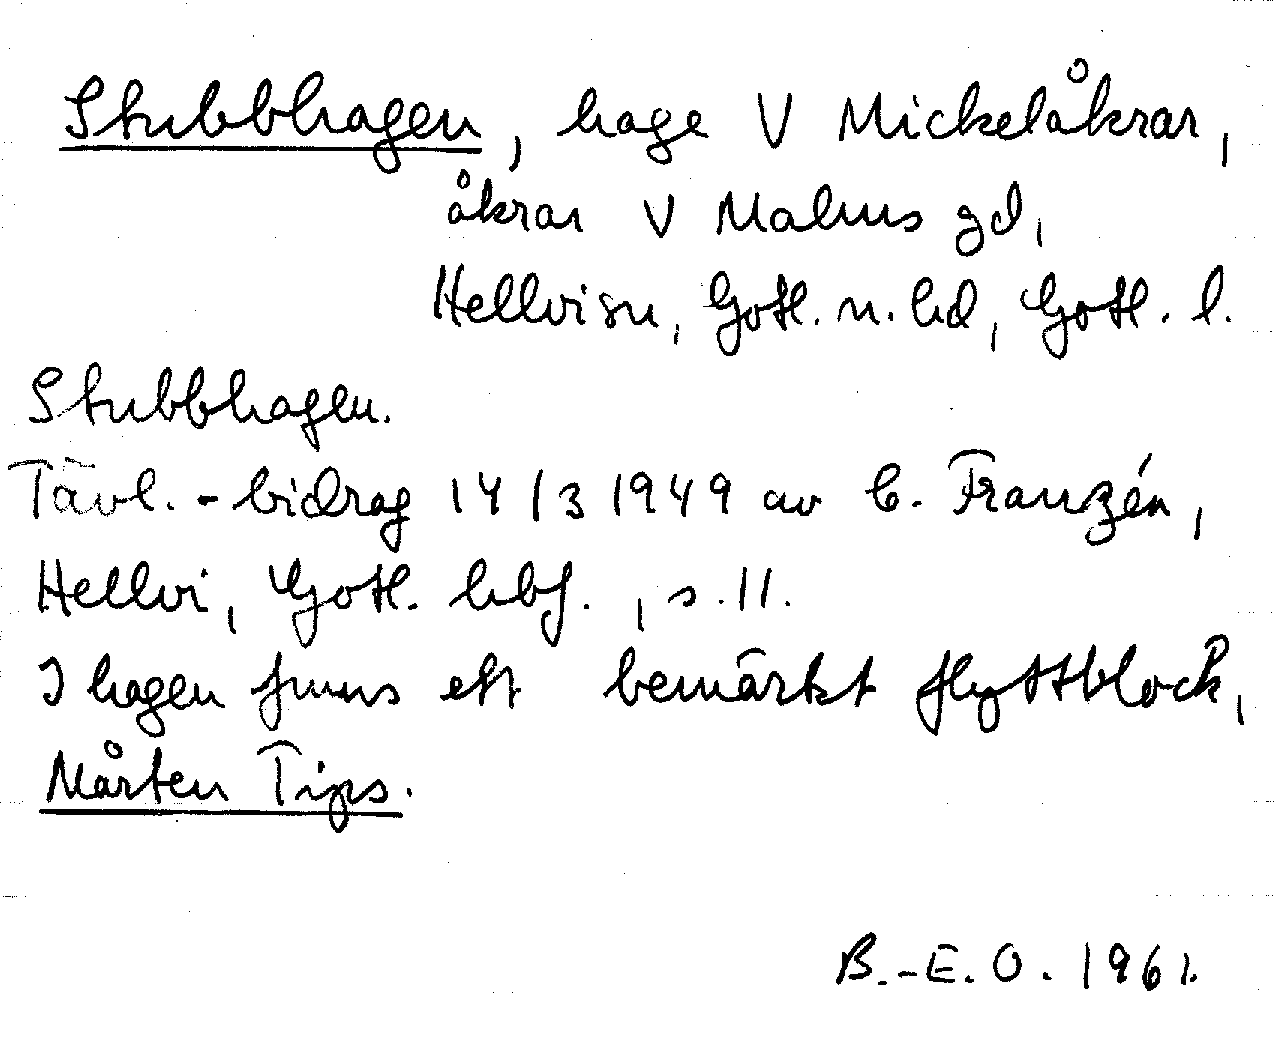 Stubbhagen, hage V Mickelåkrar,
åkrar V Malms gd,
Hellvi sn, Gotl. n. hd, Gotl. l.
Stubbhagen.
Tävl.-bidrag 14/3 1949 av C. Franzén,
Hellvi, Gotl. hbf., s. 11.
I hagen finns ett bemärkt flyttblock,
Mårten Tips.
B.-E. O. 1961.